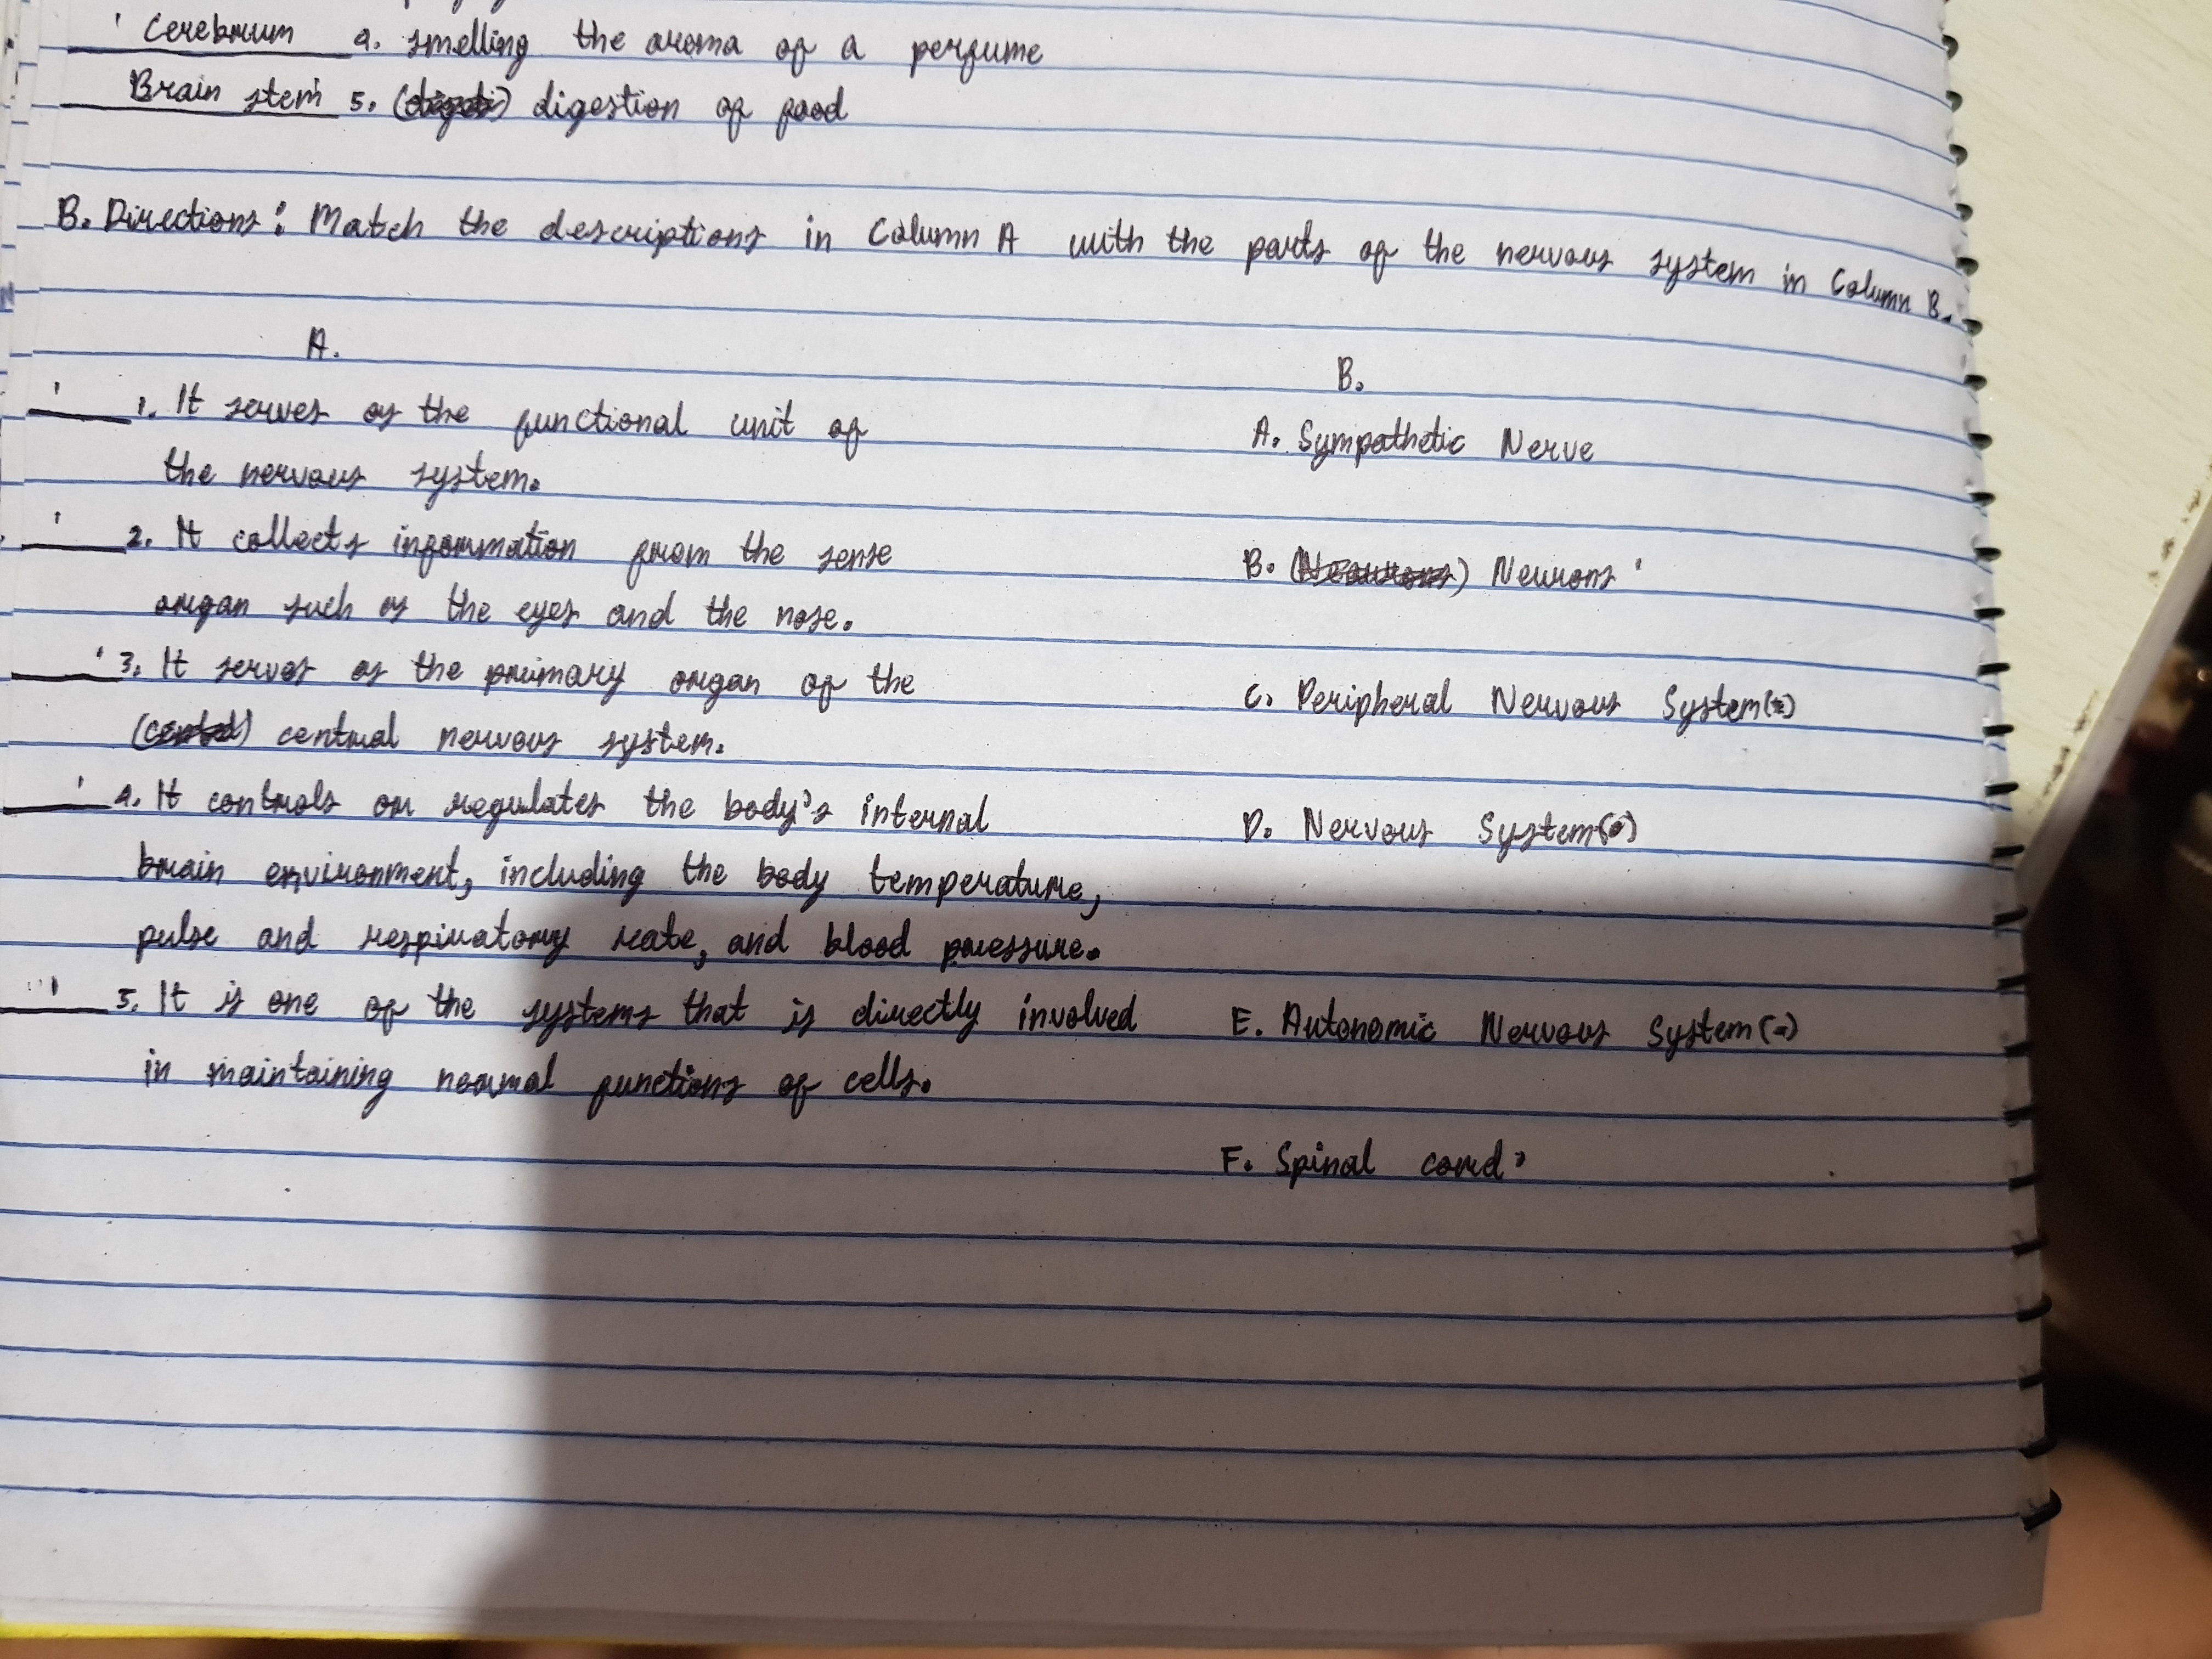 Cerebrum 4. smelling the aroma of a perfume
Brain stem 5. digestion of food
B. Directions: Match the descriptions in column A with the parts of the nervous system in column B.
A. B.
1. It serves as the functional unit of A. Sympathetic Nerve
the nervous system.
2. It collects information from the sense B. Neurons
organ such as the eyes and the nose.
3. It serves as the primary organ of the C. Peripheral Nervous System
central nervous system.
4. It controls or regulates the body's internal D. Nervous System
brain environment, including the body temperature,
pulse and respiratory reate, and blood pressure.
5. It is one of the systems that is directly involved E. Autonomic Nervous System
in maintaining normal functions of cells.
F. Spinal cord